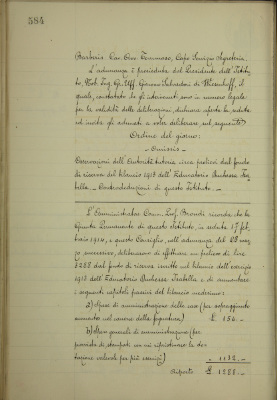 584
Barberis Cav. Avv. Tommaso, Capo Servizio Segreteria.
L'adunanza è presieduta dal Presidente dell'Istitu-
to, Nob. Ing. Gr. Uff. Giovanni Salvadori di Wiesenhoff, il
quale, constatato che gli intervenuti sono in numero legale
per la validità delle deliberazioni, dichiara aperta la seduta
ed invita gli adunati a voler deliberare sul seguente
Ordine del giorno:
- Omissis -
Osservazioni dell'Autorità tutoria circa prelievi dal fondo
di riserva del bilancio 1913 dell'Educatorio Duchessa Isa-
bella. - Controdeduzioni di questo Istituto. -
L'Amministratore Comm. Prof. Biondi ricorda che la
Giunta Permanente di questo Istituto, in seduta 17 feb-
braio 1914, e questo Consiglio, nell'adunanza del 28 mar-
zo successivo, deliberavano di effettuare un prelievo di lire
3288 dal fondo di riserva inscritto nel bilancio dell'esercizio
1913 dell'Educatorio Duchessa Isabella e di aumentare
i seguenti capitoli passivi del bilancio medesimo:
a) Spese di amministrazione della casa (per sopraggiunto
aumento nel canone della fognatura) £ 156. -
b) Spese generali di amministrazione (per
provvista di stampati con cui ripristinare la do-
tazione valevole per più esercizi) " 1132. -
Riporto £ 1288. -